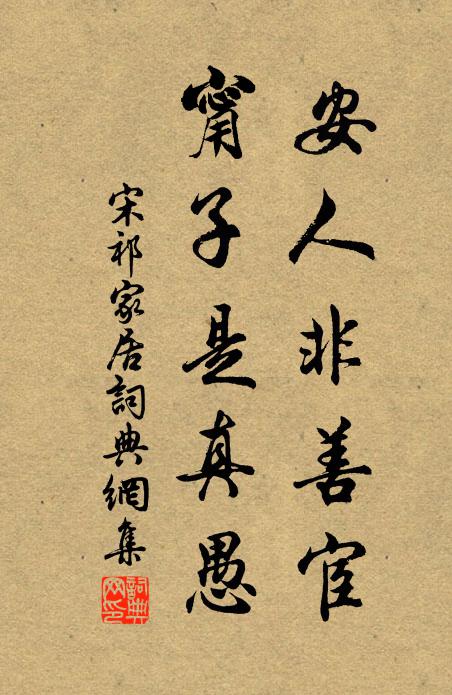 安人非善宦
甯子是真愚
宋祁家居詞典網集
詞典网印